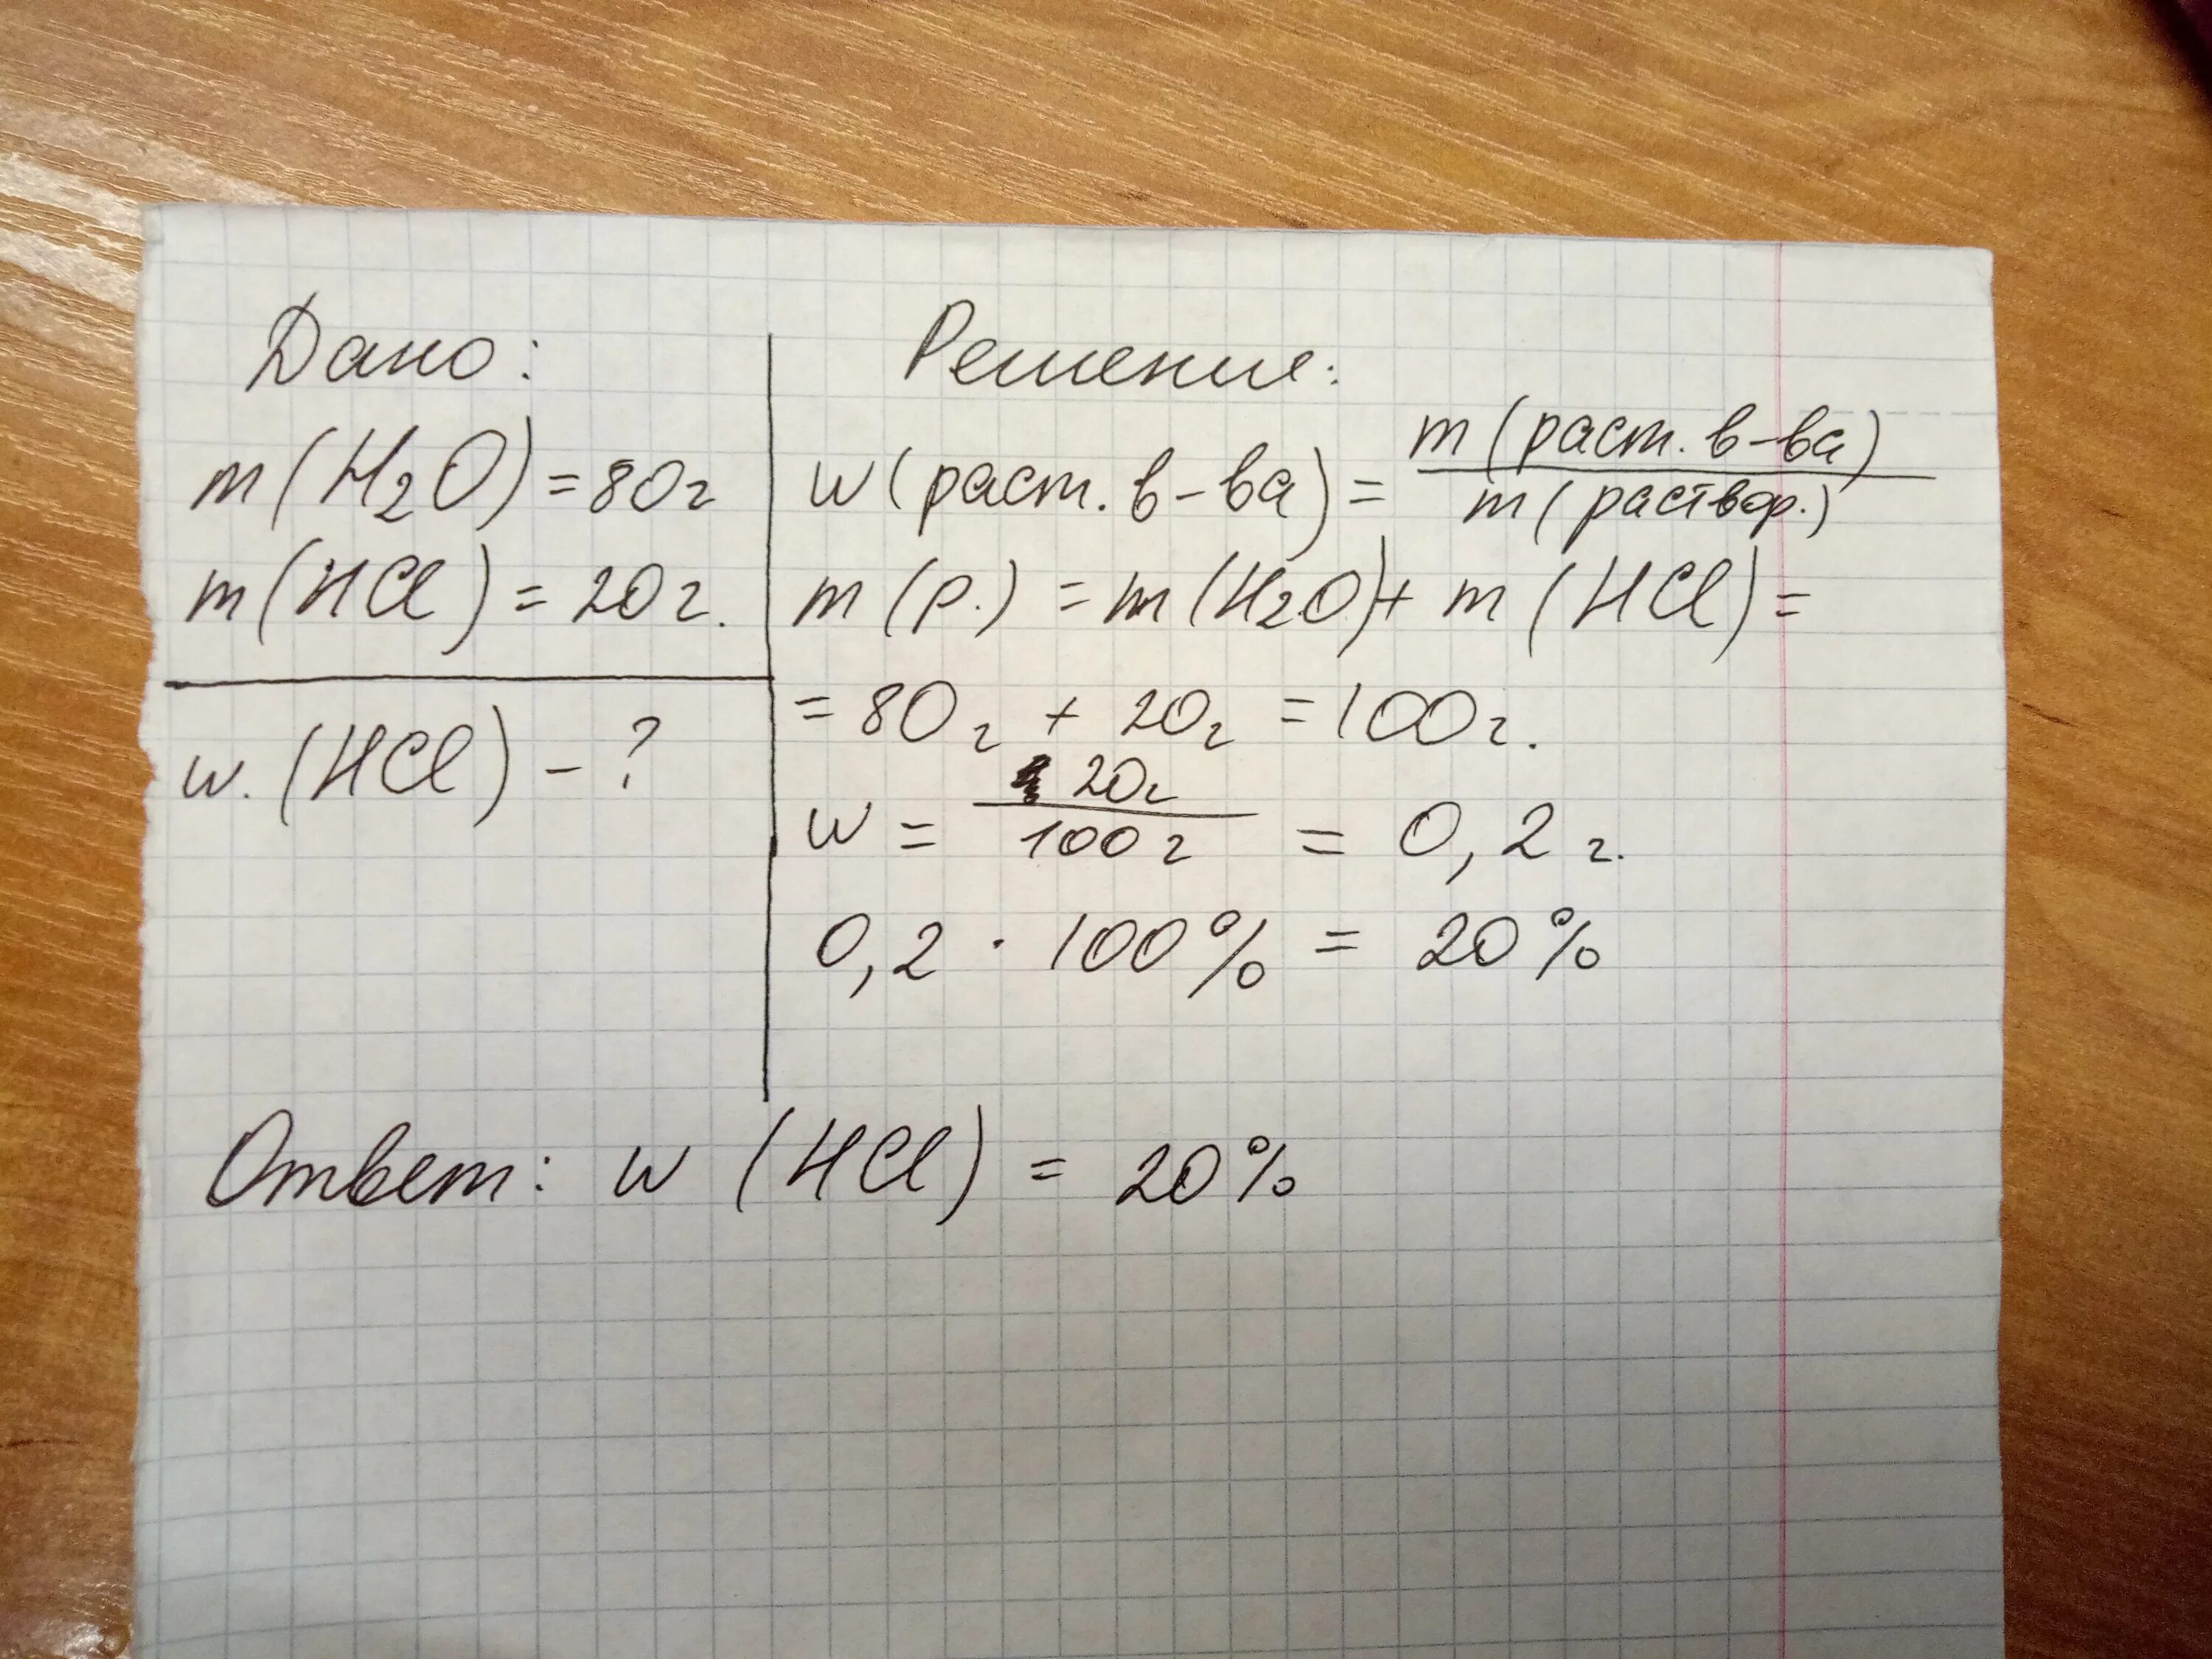 Дано:
m(H₂O)=80г
m(HCl)=20г.
w.(HCl)-?
Решение:
w(раст. в-ва)= m(раст. в-ва) / m(раствор.)
m(р.)=m(H₂O)+m(HCl)=
=80г+20г=100г.
w= 20г / 100г =0,2г.
0,2·100%=20%
Ответ: w (HCl) = 20%